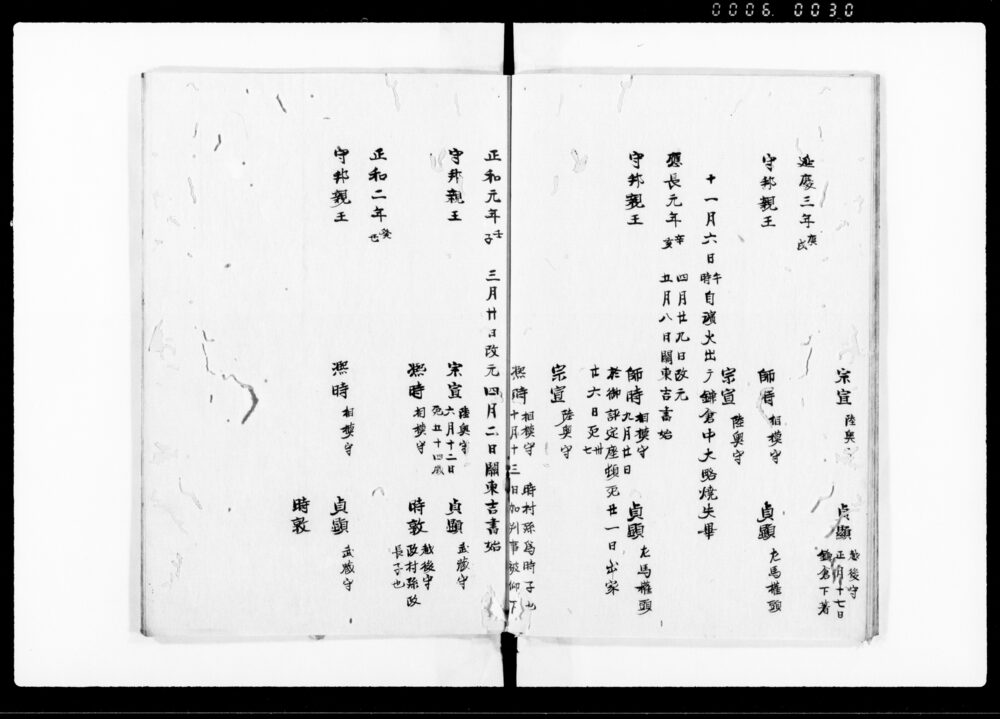 0006 0030
宗宣 陸奥 貞顕 越後守
正月十七日
鎌倉下著
延慶三年 庚戌
守邦親王 師時 相模守 貞顕 左馬権頭
宗宣 陸奥守
十一月六日 午時 自濱火出テ鎌倉中大略焼失畢
應長元年 辛亥 四月廿九日改元
五月八日關東吉書始
守邦親王 師時 相模守 貞顕 左馬権頭
九月廿日
於御評定座頓死廿一日出家
廿六日死 卅七
宗宣 陸奥守
熈時 相模守 時村孫為時子也
十月十三日加判事被仰下
正和元年 壬子 三月廿日改元四月二日關東吉書始
守邦親王 宗宣 陸奥守 貞顕 武蔵守
六月十二日
死五十四歳
熈時 相模守 時敦 越後守
政村孫政
長子也
正和二年 癸丑
守邦親王 熈時 相模守 貞顕 武蔵守
時敦